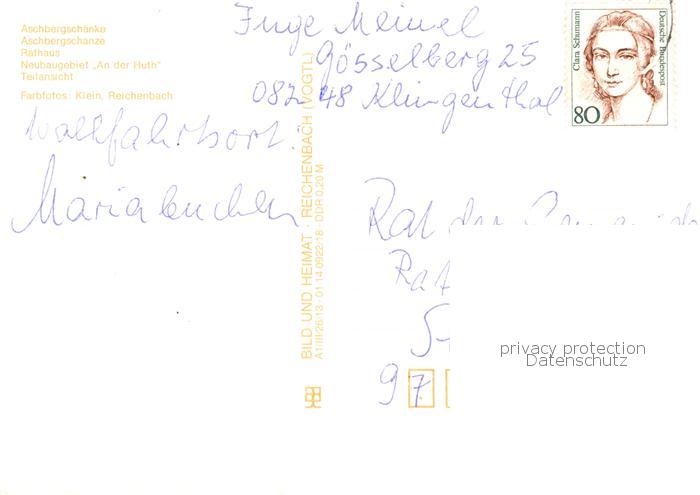 Aschbergschänke
Aschbergschanze
Rathaus
Neubaugebiet „An der Huth"
Teilansicht
Farbfotos: Klein, Reichenbach
Inge Meinel
Gösselberg 25
08248 Klingenthal
Wallfahrtsort:
Mariabuchen
BILD UND HEIMAT · REICHENBACH (VOGTL)
A1/III/26/13 · 01 14 0922/18 · DDR 0,20 M
Clara Schumann
Deutsche Bundespost
80
Rat der
Rat
97
privacy protection
Datenschutz